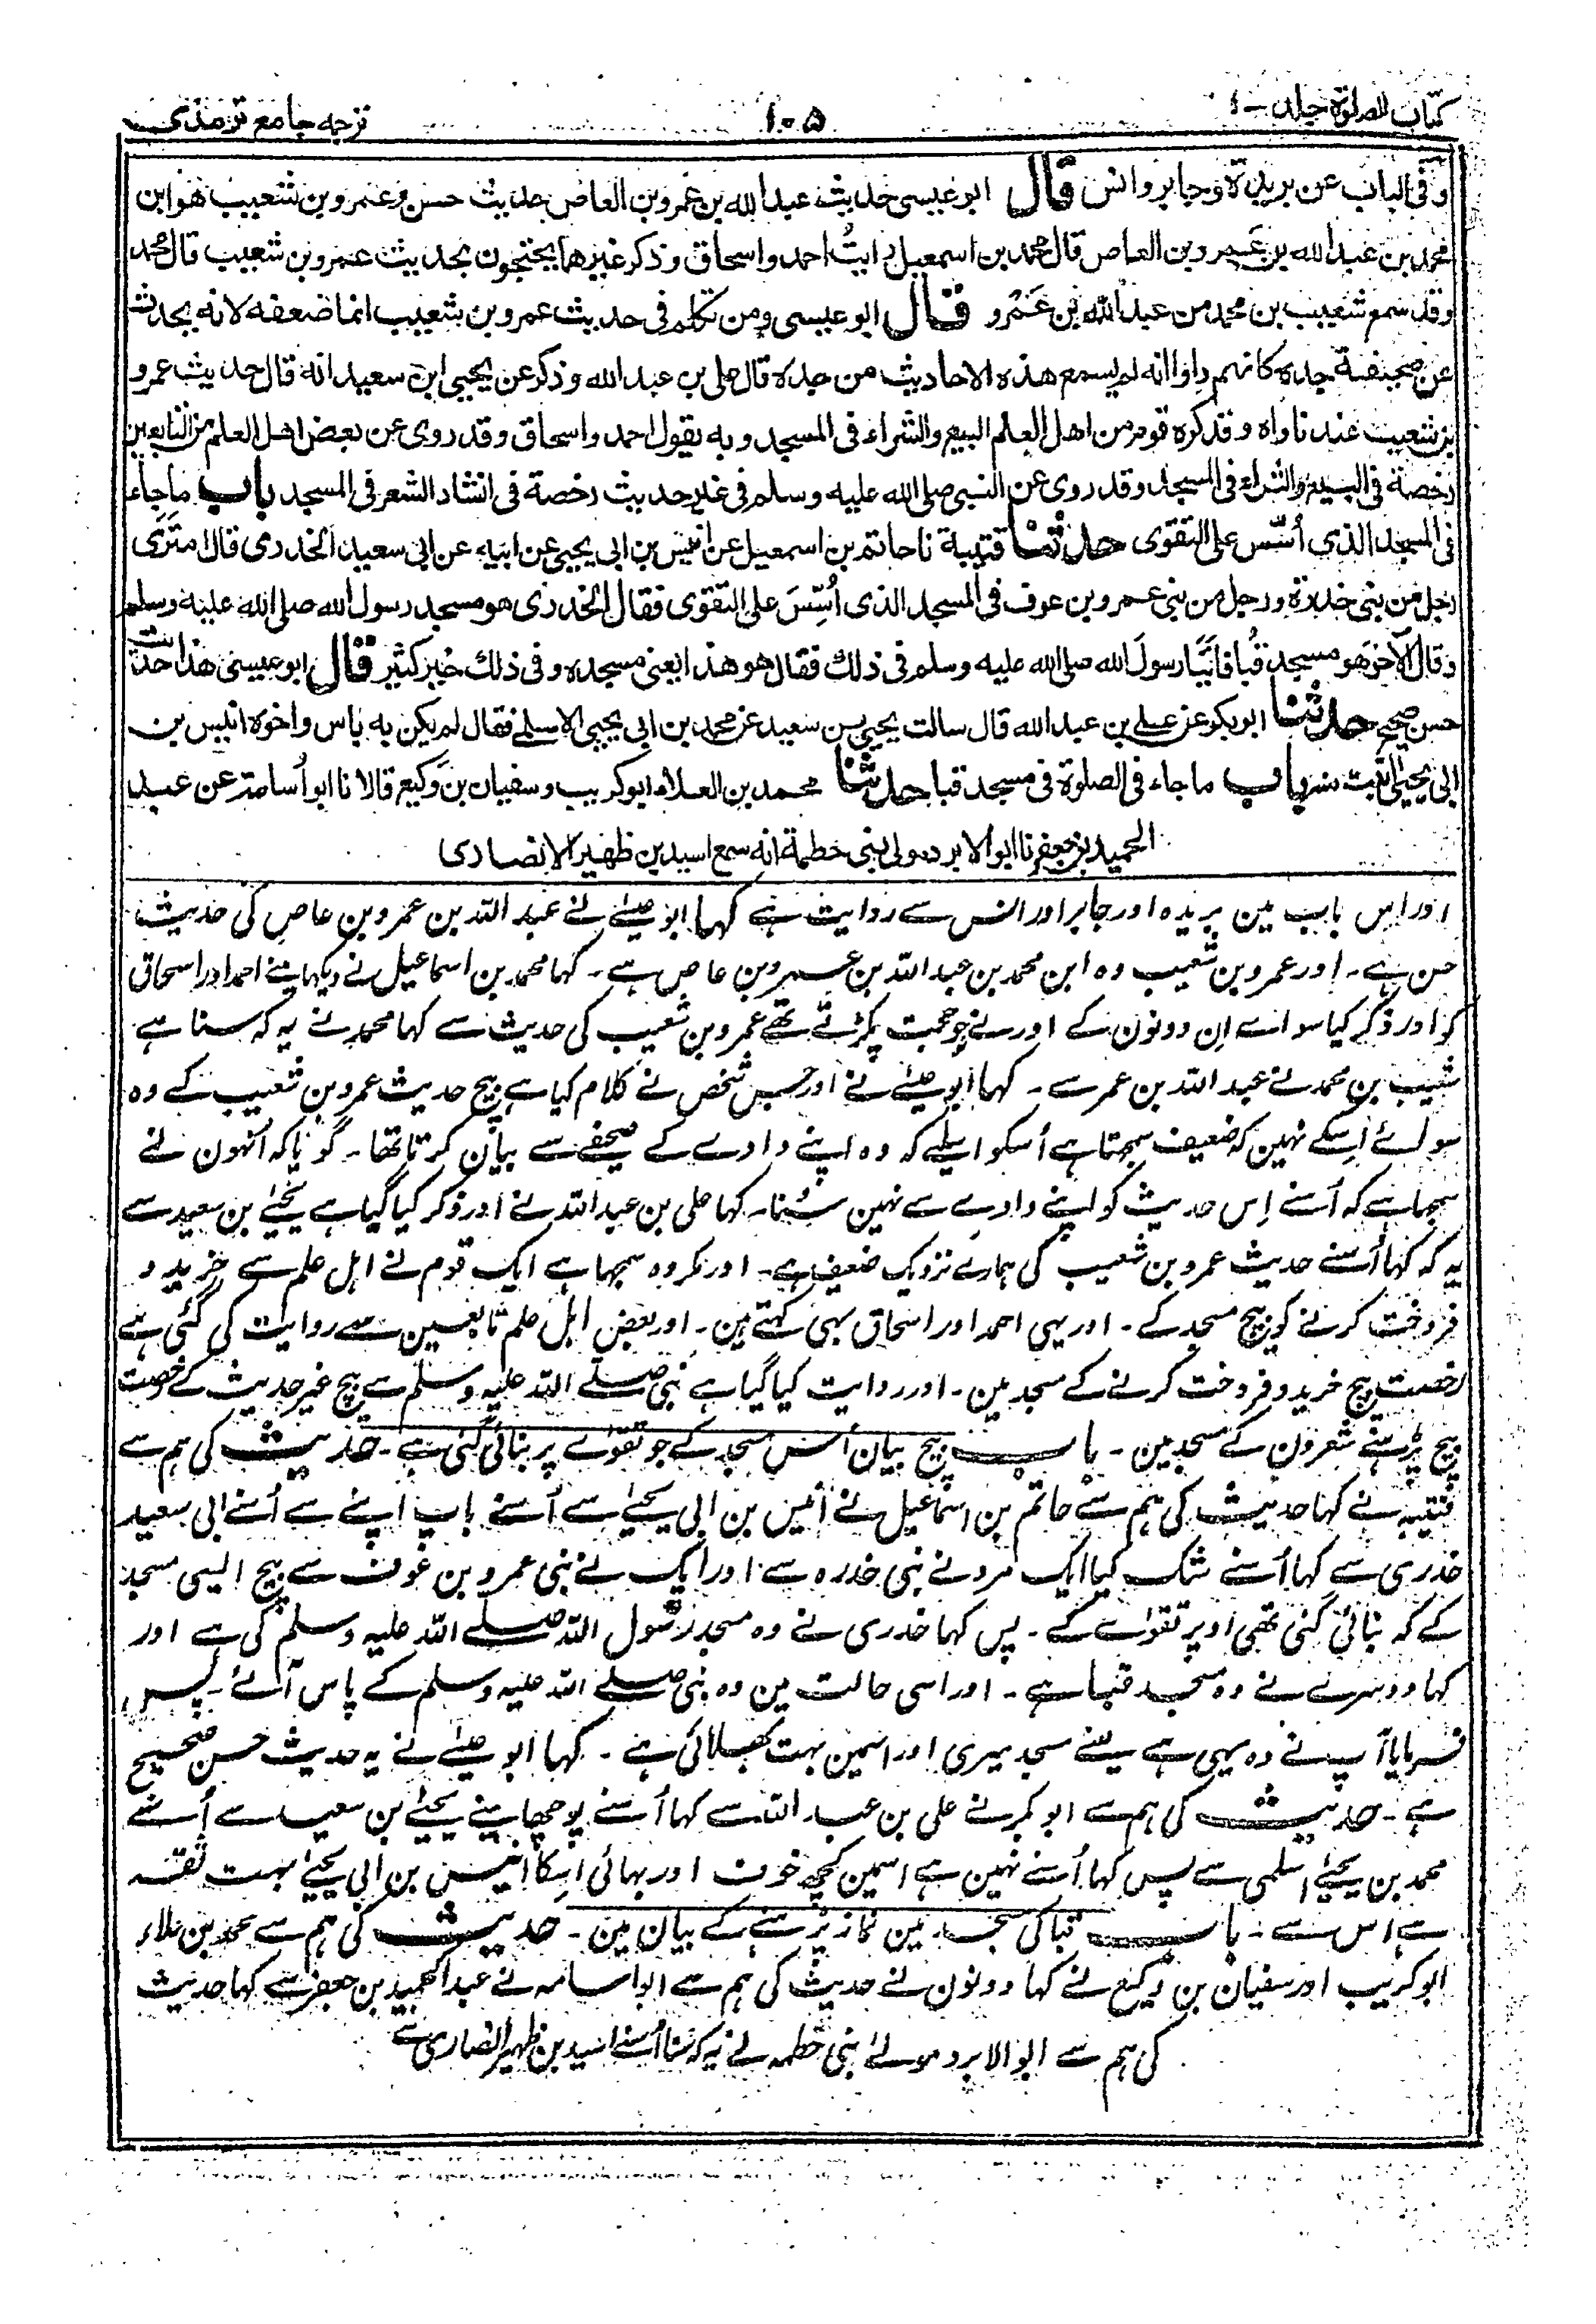 کتاب الصلوٰۃ جلد - ۱
۱۰۵
ترجمہ جامع ترمذی
وفی الباب عن بریدة وجابر وانس قال ابو عیسی حدیث عبد الله بن عمرو بن العاص حدیث حسن وعمرو بن شعیب هو ابن
محمد بن عبد الله بن عمرو بن العاص قال محمد بن اسمعیل رایتُ احمد واسحاق وذکر غیرهما یحتجون بحدیث عمرو بن شعیب قال محمد
وقد سمع شعیب بن محمد من عبد الله بن عَمْرو قال ابو عیسی ومن تکلم فی حدیث عمرو بن شعیب انما ضعفه لانه یحدث
عن صحیفة جده کانهم راوا انه لم یسمع هذه الاحادیث من جده قال علی بن عبد الله وذکر عن یحیی ابن سعید انه قال حدیث عمرو
بن شعیب عندنا واه وقد کره قوم من اهل العلم البیع والشراء فی المسجد وبه یقول احمد واسحاق وقد روی عن بعض اهل العلم من التابعین
رخصة فی البیع والشراء فی المسجد وقد روی عن النبی صلی الله علیه وسلم فی غیر حدیث رخصة فی انشاد الشعر فی المسجد باب ما جاء
فی المسجد الذی أُسّس علی التقوی حدثنا قتیبة نا حاتم بن اسمعیل عن انیس بن ابی یحیی عن ابیه عن ابی سعید الخدری قال امتَرَی
رجل من بنی خدرة ورجل من بنی عمرو بن عوف فی المسجد الذی أُسِّسَ علی التقوی فقال الخدری هو مسجد رسول الله صلی الله علیه وسلم
وقال الآخر هو مسجد قُبا فاتَیَا رسولَ الله صلی الله علیه وسلم فی ذلك فقال هو هذا یعنی مسجده وفی ذلك خیر کثیر قال ابو عیسی هذا حدیث
حسن صحیح حدثنا ابو بکر عن علی بن عبد الله قال سالت یحیی بن سعید عن محمد بن ابی یحیی الاسلمی فقال لم یکن به باس واخوه انیس بن
ابی یحیی اثبت منه باب ما جاء فی الصلوة فی مسجد قبا حدثنا محمد بن العلاء ابو کریب وسفیان بن وکیع قالا نا ابو أسامة عن عبد
الحمید بن جعفر نا ابو الابرد مولی بنی خطمة انه سمع اسید بن ظهیر الانصاری
اور اس باب مین بریدہ اور جابر اور انس سے روایت ہے کہا ابو عیسےٰ نے عبد اللہ بن عمرو بن عاص کی حدیث
حسن ہے۔ اور عمرو بن شعیب وہ ابن محمد بن عبد اللہ بن عمرو بن عاص ہے۔ کہا محمد بن اسماعیل نے دیکھا مینے احمد اور اسحاق
کو اور ذکر کیا سواے اِن دونون کے اور نے جو حجت پکڑتے تھے عمرو بن شعیب کی حدیث سے کہا محمد نے یہ کہ سنا ہے
شعیب بن محمد نے عبد اللہ بن عمر سے ۔ کہا ابو عیسےٰ نے اور جس شخص نے کلام کیا ہے بیچ حدیث عمرو بن شعیب کے وہ
سوائے اِسکے نہین کہ ضعیف سمجتا ہے اُسکو اسلیے کہ وہ اپنے دادے کے صحیفے سے بیان کرتا تھا۔ گویا کہ اُنہون نے
سمجہا ہے کہ اُسنے اِس حدیث کو اپنے دادے سے نہین سُنا۔ کہا علی بن عبد اللہ نے اور ذکر کیا گیا ہے یحیےٰ بن سعید سے
یہ کہ کہا اُسنے حدیث عمرو بن شعیب کی ہمارے نزدیک ضعیف ہے۔ اور مکروہ سمجہا ہے ایک قوم نے اہل علم سے خرید و
فروخت کرنے کو بیچ مسجد کے ۔ اور یہی احمد اور اسحاق بہی کہتے ہین۔ اور بعض اہل علم تابعین سے روایت کی گئی ہے
رخصت بیچ خرید و فروخت کرنے کے مسجد مین۔ اور روایت کیا گیا ہے نبی صلے اللہ علیہ وسلم سے بیچ غیر حدیث کے رخصت
بیچ پڑہنے شعرون کے مسجد مین ۔ باب بیچ بیان اُس مسجد کے جو تقوےٰ پر بنائی گئی ہے۔ حدیث کی ہم سے
قتیبہ نے کہا حدیث کی ہم سے حاتم بن اسماعیل نے اُنیس بن ابی یحیےٰ سے اُسنے باپ اپنے سے اُسنے ابی سعید
خدری سے کہا اُسنے شک کیا ایک مرد نے بنی خدرہ سے اور ایک نے بنی عمرو بن عوف سے بیچ ایسی مسجد
کے کہ بنائی گئی تھی اوپر تقوےٰ کے ۔ پس کہا خدری نے وہ مسجد رسول اللہ صلے اللہ علیہ وسلم کی ہے اور
کہا دوسرے نے وہ مسجد قبا ہے ۔ اور اسی حالت مین وہ نبی صلے اللہ علیہ وسلم کے پاس آئے ۔ پس
فرمایا آپ نے وہ یہی ہے یعنے مسجد میری اور اسمین بہت بھلائی ہے ۔ کہا ابو عیسےٰ نے یہ حدیث حسن صحیح
ہے ۔ حدیث کی ہم سے ابو بکر نے علی بن عبد اللہ سے کہا اُسنے پوچھا مینے یحیےٰ بن سعید سے اُسنے
محمد بن یحیےٰ اسلمی سے پس کہا اُسنے نہین ہے اسمین کچھ خوف اور بہائی اسکا انیس بن ابی یحیےٰ بہت ثقہ
ہے اس سے ۔ باب قبا کی مسجد مین نماز پڑہنے کے بیان مین ۔ حدیث کی ہم سے محمد بن علاء
ابو کریب اور سفیان بن وکیع نے کہا دونون نے حدیث کی ہم سے ابو اسامہ نے عبد الحمید بن جعفر سے کہا حدیث
کی ہم سے ابو الابرد مولےٰ بنی خطمہ نے یہ کہ سنا اُسنے اسید بن ظہیر انصاری سے